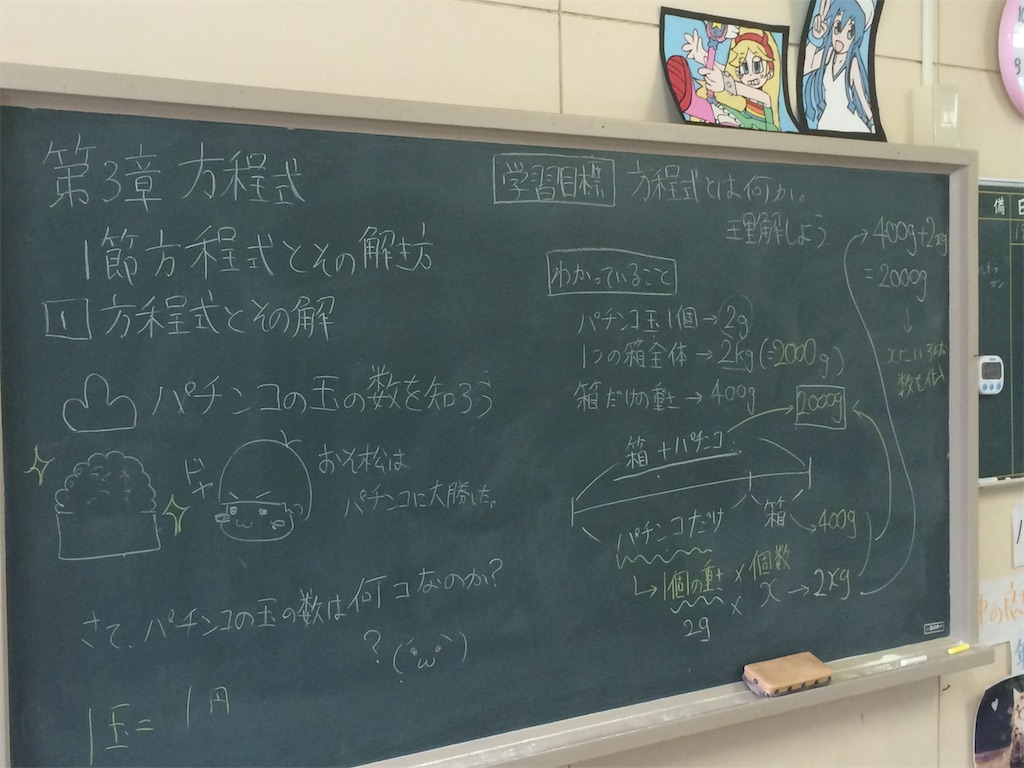 第3章 方程式
1節 方程式とその解き方
1 方程式とその解
パチンコの玉の数を知ろう
ドヤ
おそ松は
パチンコに大勝した。
さて、パチンコの玉の数は何コなのか?
?(´・ω・`)
1玉= 1円
学習目標 方程式とは何か。
理解しよう
わかっていること
パチンコ玉1個→2g
1つの箱全体→2kg(=2000g)
箱だけの重さ→400g
2000g
箱+パチンコ
パチンコだけ
箱→400g
1個の重さ×個数
2g × x → 2xg
400g+2xg
=2000g
↓
数を代入
備